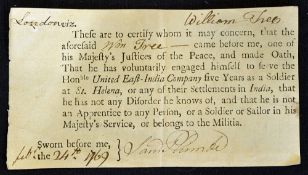 London viz.
William Tree
These are to certify whom it may concern, that the
aforesaid Wm Tree — came before me, one of
his Majesty's Justices of the Peace, and made Oath,
That he has voluntarily engaged himself to serve the
Honble United East-India Company five Years as a Soldier
at St. Helena, or any of their Settlements in India, that
he has not any Disorder he knows of, and that he is not
an Apprentice to any Person, or a Soldier or Sailor in his
Majesty's Service, or belongs to the Militia.
Sworn before me,
the 24th 1769